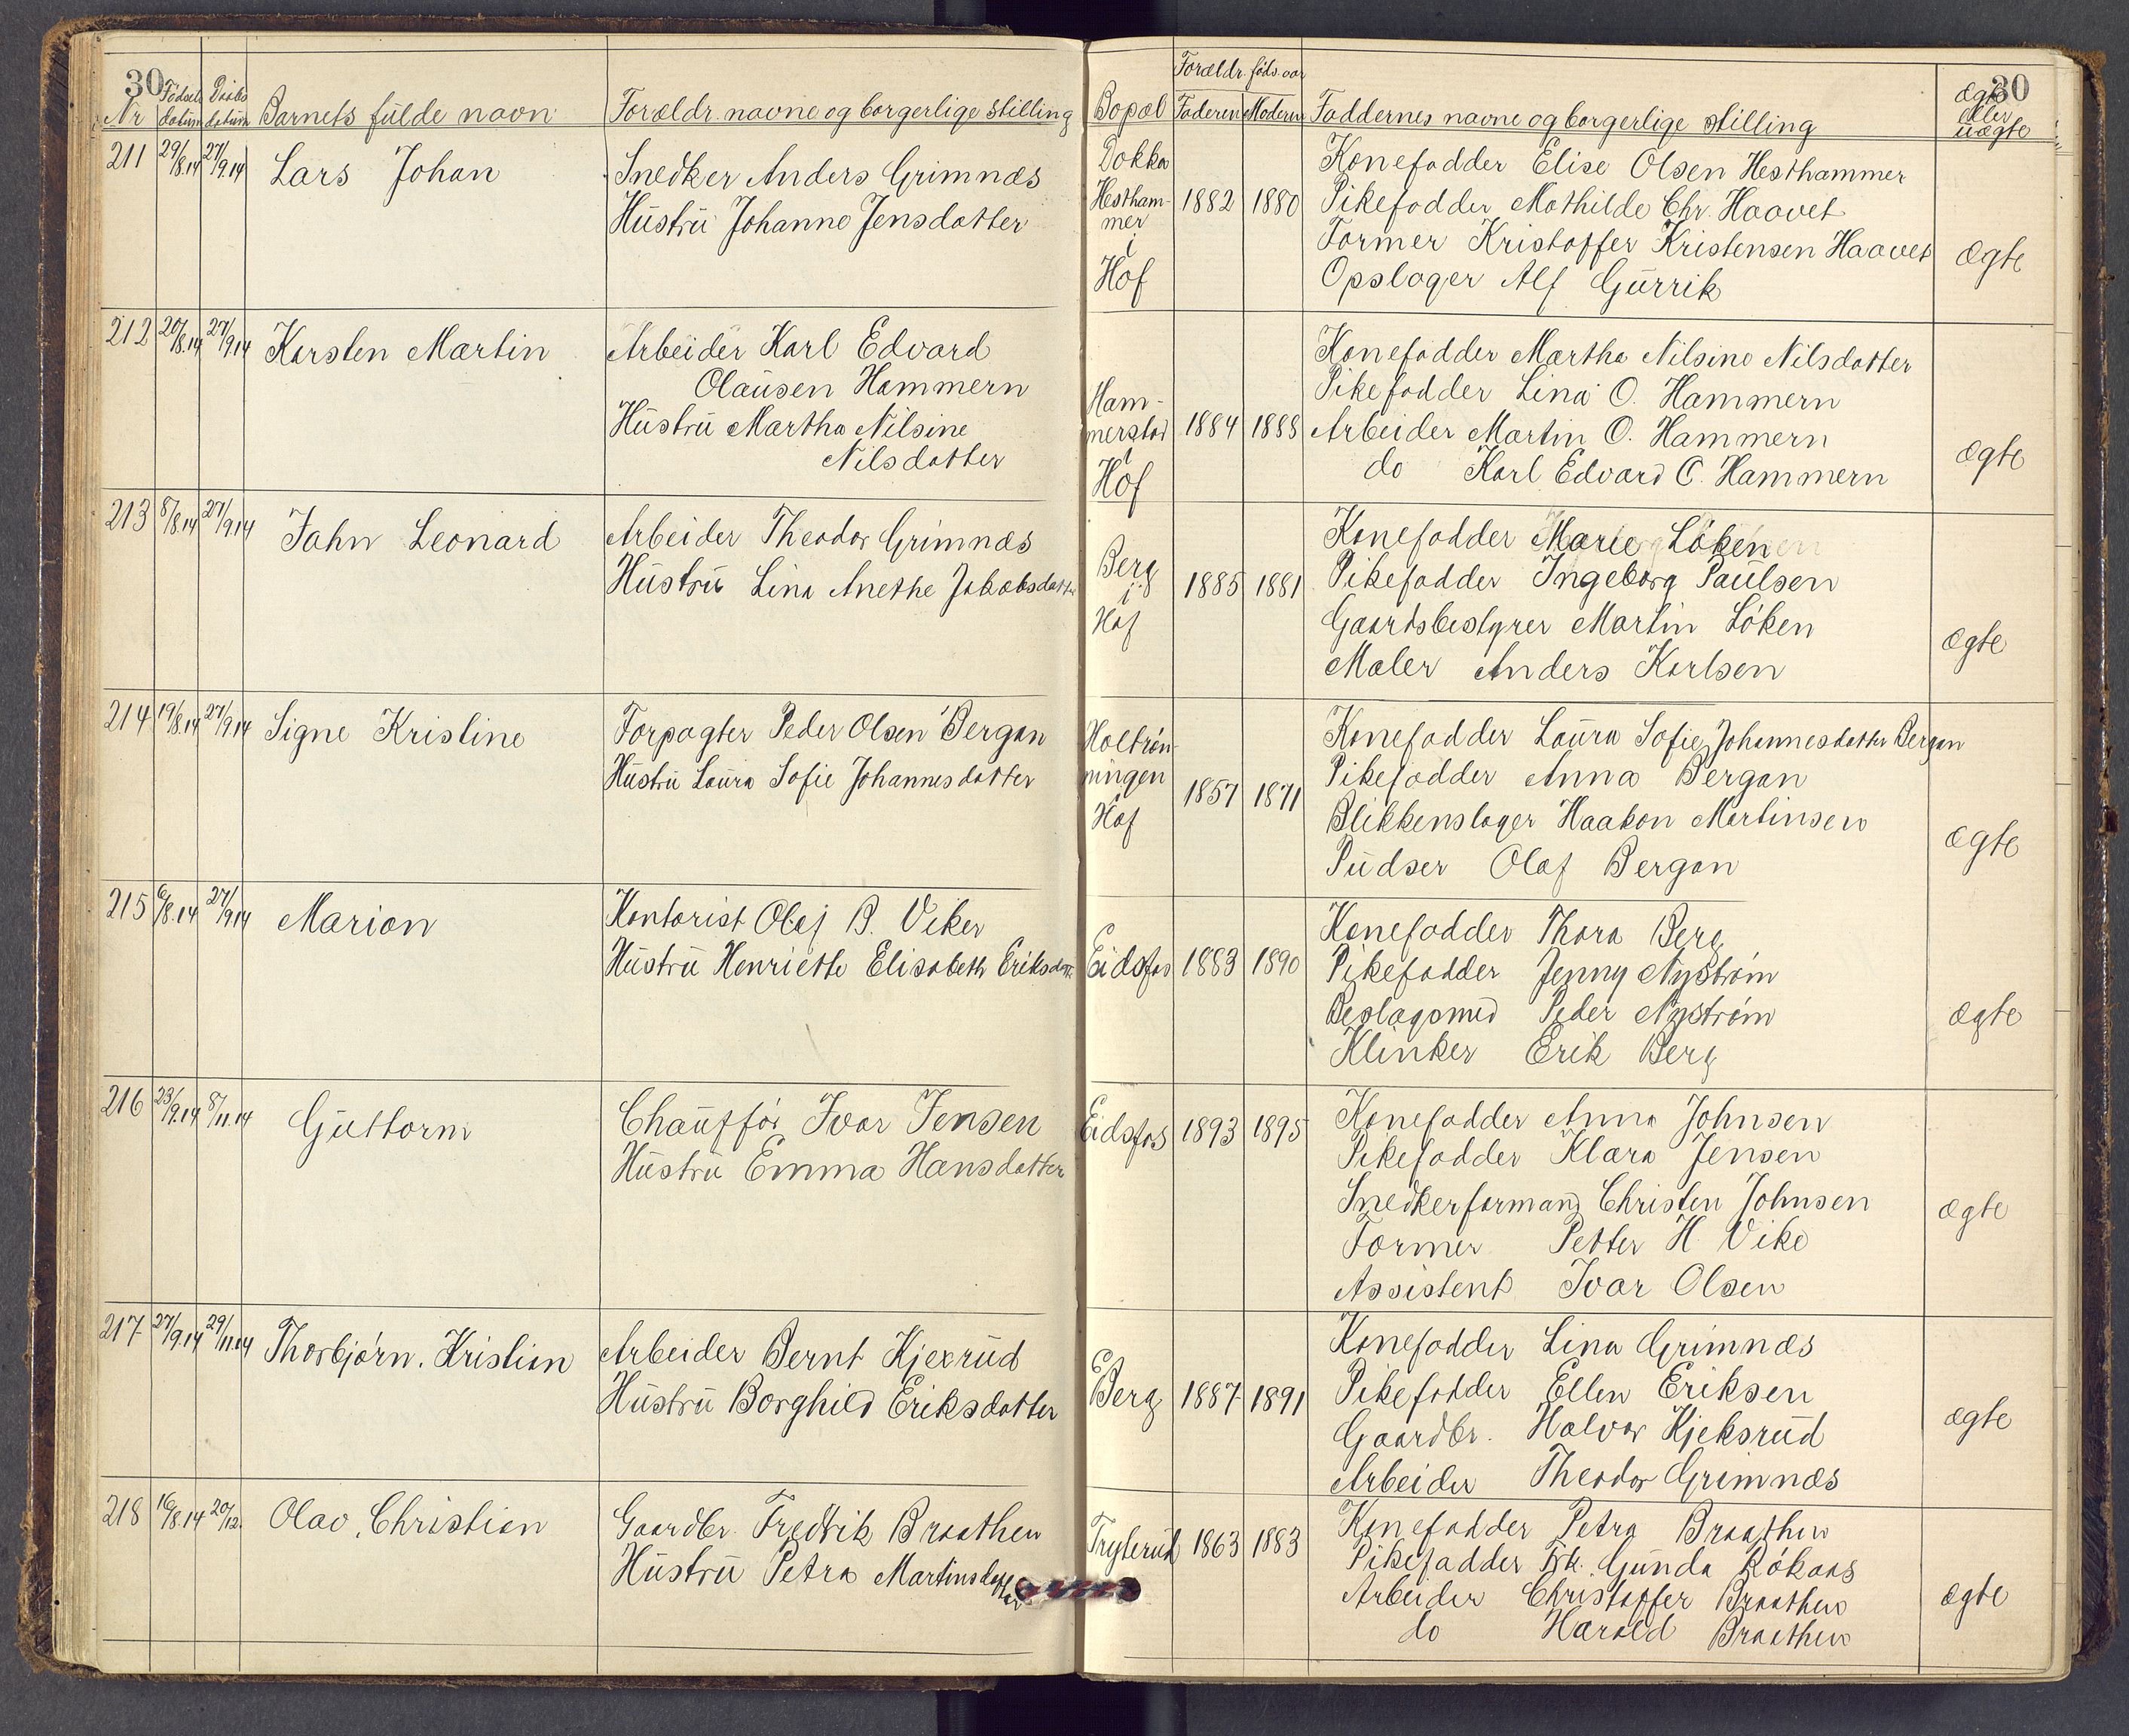 30
Nr Fødsels datum Daabs datum Barnets fulde navn Forældr. navne og borgerlige stilling Bopæl Forældr. føds. aar Faderen Moderen Faddernes navne og borgerlige stilling ægte eller uægte
30
211 29/8.14 27/9.14 Lars Johan
Snedker Anders Grimnæs
Hustru Johanne Jensdatter
Dokka
Hestham-
mer
i
Hof
1882 1880
Konefadder Elise Olsen Hesthammer
Pikefadder Mathilde Chr. Haavet
Former Kristoffer Kristensen Haavet
Opslager Alf Gurrik
ægte
212 20/8.14 27/9.14 Karsten Martin
Arbeider Karl Edvard
Olausen Hammern
Hustru Martha Nilsine
Nilsdatter
Ham-
merstad
i
Hof
1884 1888
Konefadder Martha Nilsine Nilsdatter
Pikefadder Lina O. Hammern
Arbeider Martin O. Hammern
do Karl Edvard O. Hammern
ægte
213 8/8.14 27/9.14 Jahn Leonard
Arbeider Theodor Grimnæs
Hustru Lina Anethe Jakobsdatter
Berg
i
Hof
1885 1881
Konefadder Marie Løken
Pikefadder Ingeborg Paulsen
Gaardsbestyrer Martin Løken
Maler Anders Karlsen
ægte
214 19/8.14 27/9.14 Signe Kristine
Forpagter Peder Olsen Bergan
Hustru Laura Sofie Johannesdatter
Holtrøn-
ningen
i
Hof
1857 1871
Konefadder Laura Sofie Johannesdatter Bergan
Pikefadder Anna Bergan
Blikkenslager Haakon Martinsen
Pudser Olaf Bergan
ægte
215 6/8.14 27/9.14 Marion
Kontorist Olaf B. Veker
Hustru Henriette Elisabeth Eriksdatr.
Eidsfos 1883 1890
Konefadder Thora Berg
Pikefadder Jenny Nystrøm
Beslagsmed Peder Nystrøm
Klinker Erik Berg
ægte
216 23/9.14 8/11.14 Guttorm
Chaufför Ivar Jensen
Hustru Emma Hansdatter
Eidsfos 1893 1895
Konefadder Anna Johnsen
Pikefadder Klara Jensen
Snedkerformand Christen Johnsen
Former Petter H. Vike
Assistent Ivar Olsen
ægte
217 27/9.14 29/11.14 Thorbjørn. Kristian
Arbeider Bernt Kjexrud
Hustru Borghild Eriksdatter
Berg 1887 1891
Konefadder Lina Grimnæs
Pikefadder Ellen Eriksen
Gaardbr. Halvor Kjeksrud
Arbeider Theodor Grimnæs
ægte
218 16/8.14 20/12. Olav. Christian
Gaardbr. Fredrik Braathen
Hustru Petra Martinsdatter
Tryterud 1863 1883
Konefadder Petra Braathen
Pikefadder Frk. Gunda Røkaas
Arbeider Christoffer Braathen
do Harald Braathen
ægte